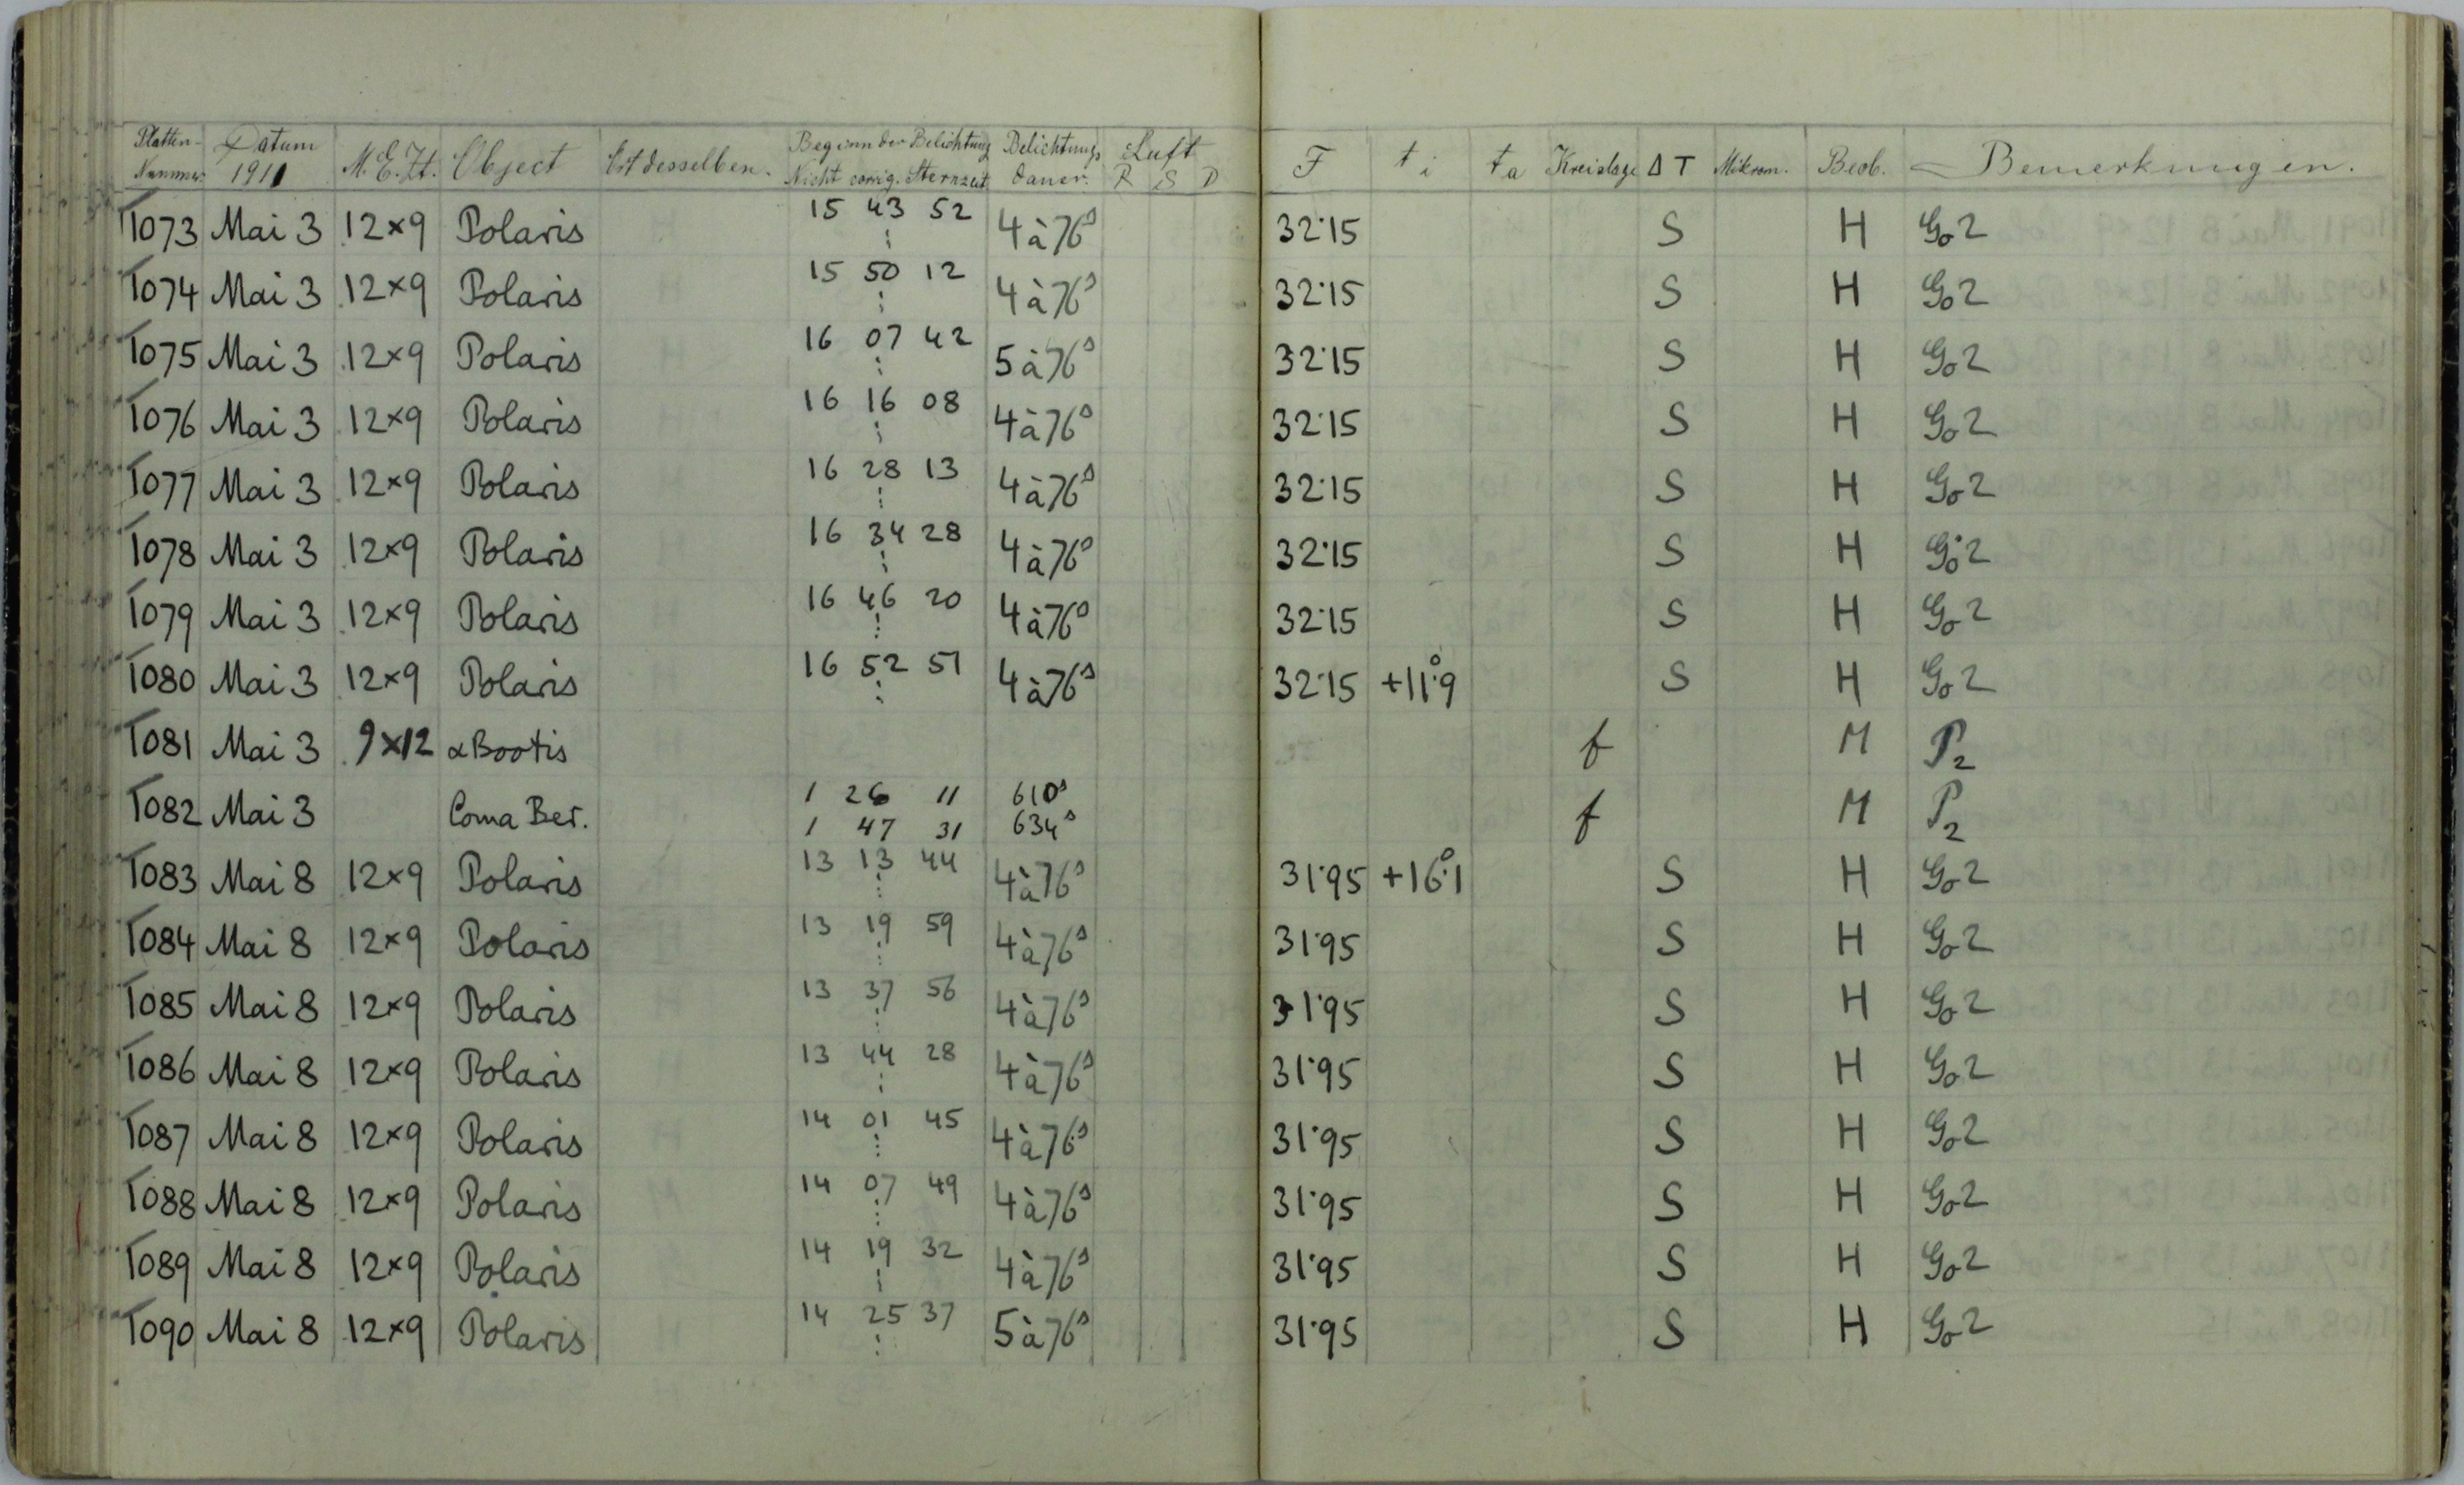 Platten- Nummer. Datum 1911 M.E.Zt. Object Ort desselben. Beginn der Belichtung Nicht corrig. Sternzeit Belichtungs dauer. Luft R S D F t i t a Kreislage Δ T Mikrom. Beob. Bemerkungen.
T073 Mai 3 12×9 Polaris 15 43 52 4 à 76ˢ 32·15 S H Go 2
T074 Mai 3 12×9 Polaris 15 50 12 4 à 76ˢ 32·15 S H Go 2
T075 Mai 3 12×9 Polaris 16 07 42 5 à 76ˢ 32·15 S H Go 2
T076 Mai 3 12×9 Polaris 16 16 08 4 à 76ˢ 32·15 S H Go 2
T077 Mai 3 12×9 Polaris 16 28 13 4 à 76ˢ 32·15 S H Go 2
T078 Mai 3 12×9 Polaris 16 34 28 4 à 76ˢ 32·15 S H Go 2
T079 Mai 3 12×9 Polaris 16 46 20 4 à 76ˢ 32·15 S H Go 2
T080 Mai 3 12×9 Polaris 16 52 51 4 à 76ˢ 32·15 +11°·9 S H Go 2
T081 Mai 3 9×12 α Bootis f M P2
T082 Mai 3 Coma Ber. 1 26 11 610ˢ f M P2
1 47 31 634ˢ
T083 Mai 8 12×9 Polaris 13 13 44 4 à 76ˢ 31·95 +16°·1 S H Go 2
T084 Mai 8 12×9 Polaris 13 19 59 4 à 76ˢ 31·95 S H Go 2
T085 Mai 8 12×9 Polaris 13 37 56 4 à 76ˢ 31·95 S H Go 2
T086 Mai 8 12×9 Polaris 13 44 28 4 à 76ˢ 31·95 S H Go 2
T087 Mai 8 12×9 Polaris 14 01 45 4 à 76ˢ 31·95 S H Go 2
T088 Mai 8 12×9 Polaris 14 07 49 4 à 76ˢ 31·95 S H Go 2
T089 Mai 8 12×9 Polaris 14 19 32 4 à 76ˢ 31·95 S H Go 2
T090 Mai 8 12×9 Polaris 14 25 37 5 à 76ˢ 31·95 S H Go 2